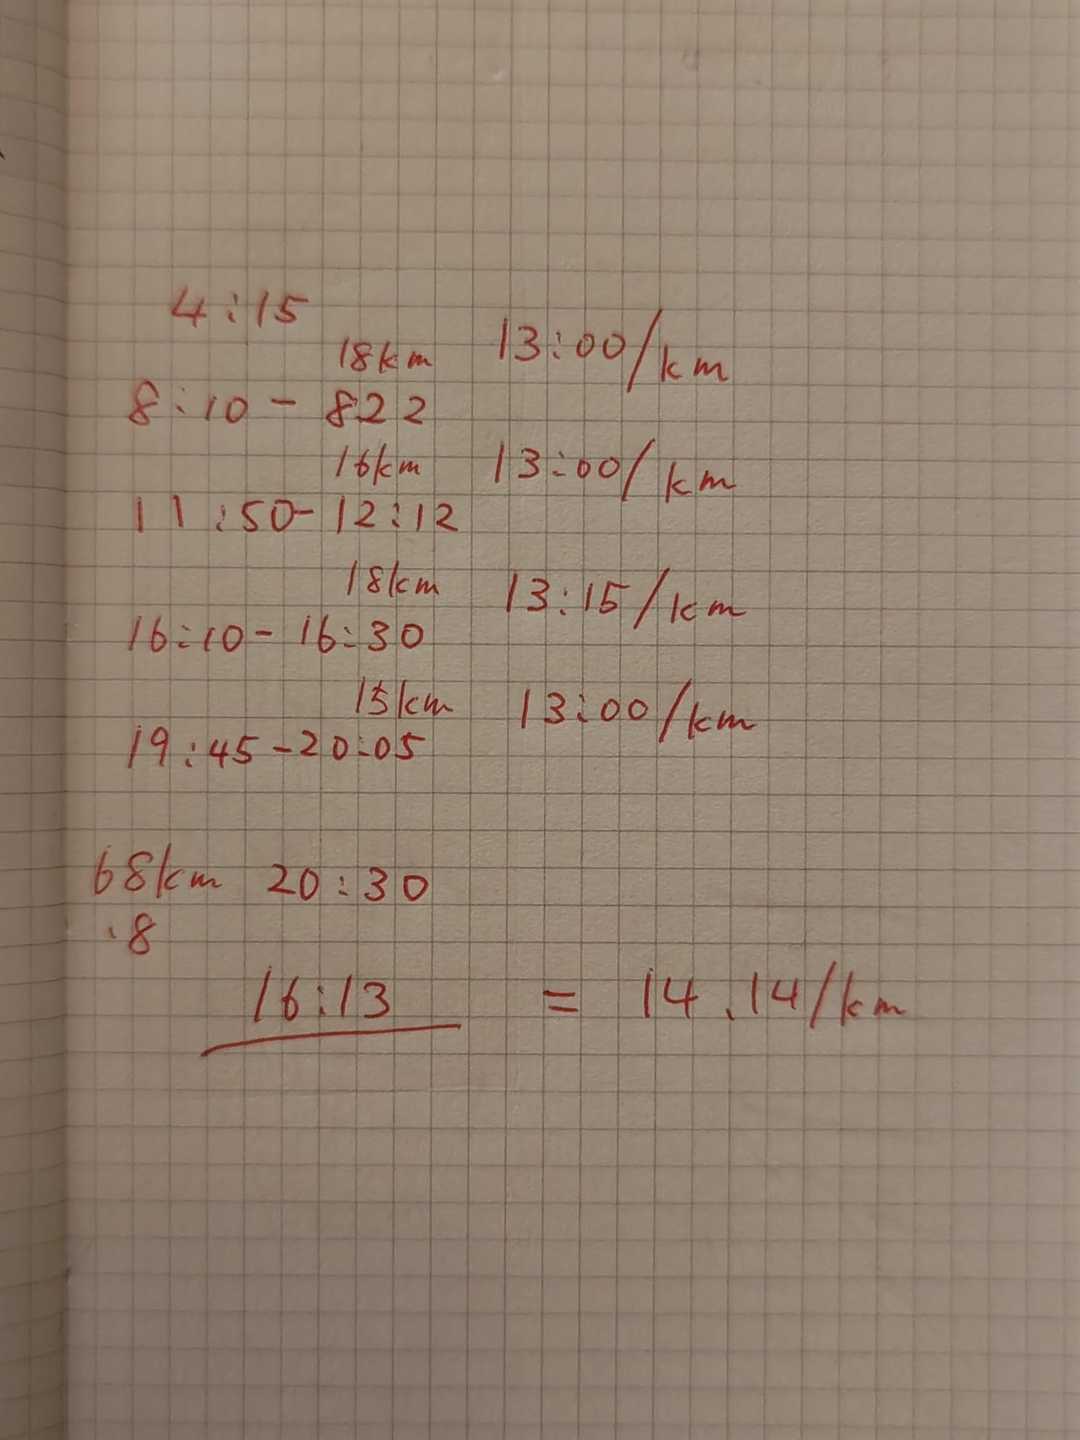 4:15
18km 13:00/km
8:10 - 822
16km 13:00/km
11:50-12:12
18km 13:15/km
16:10-16:30
15km 13:00/km
19:45-20:05
68km 20:30
.8
16:13 = 14.14/km